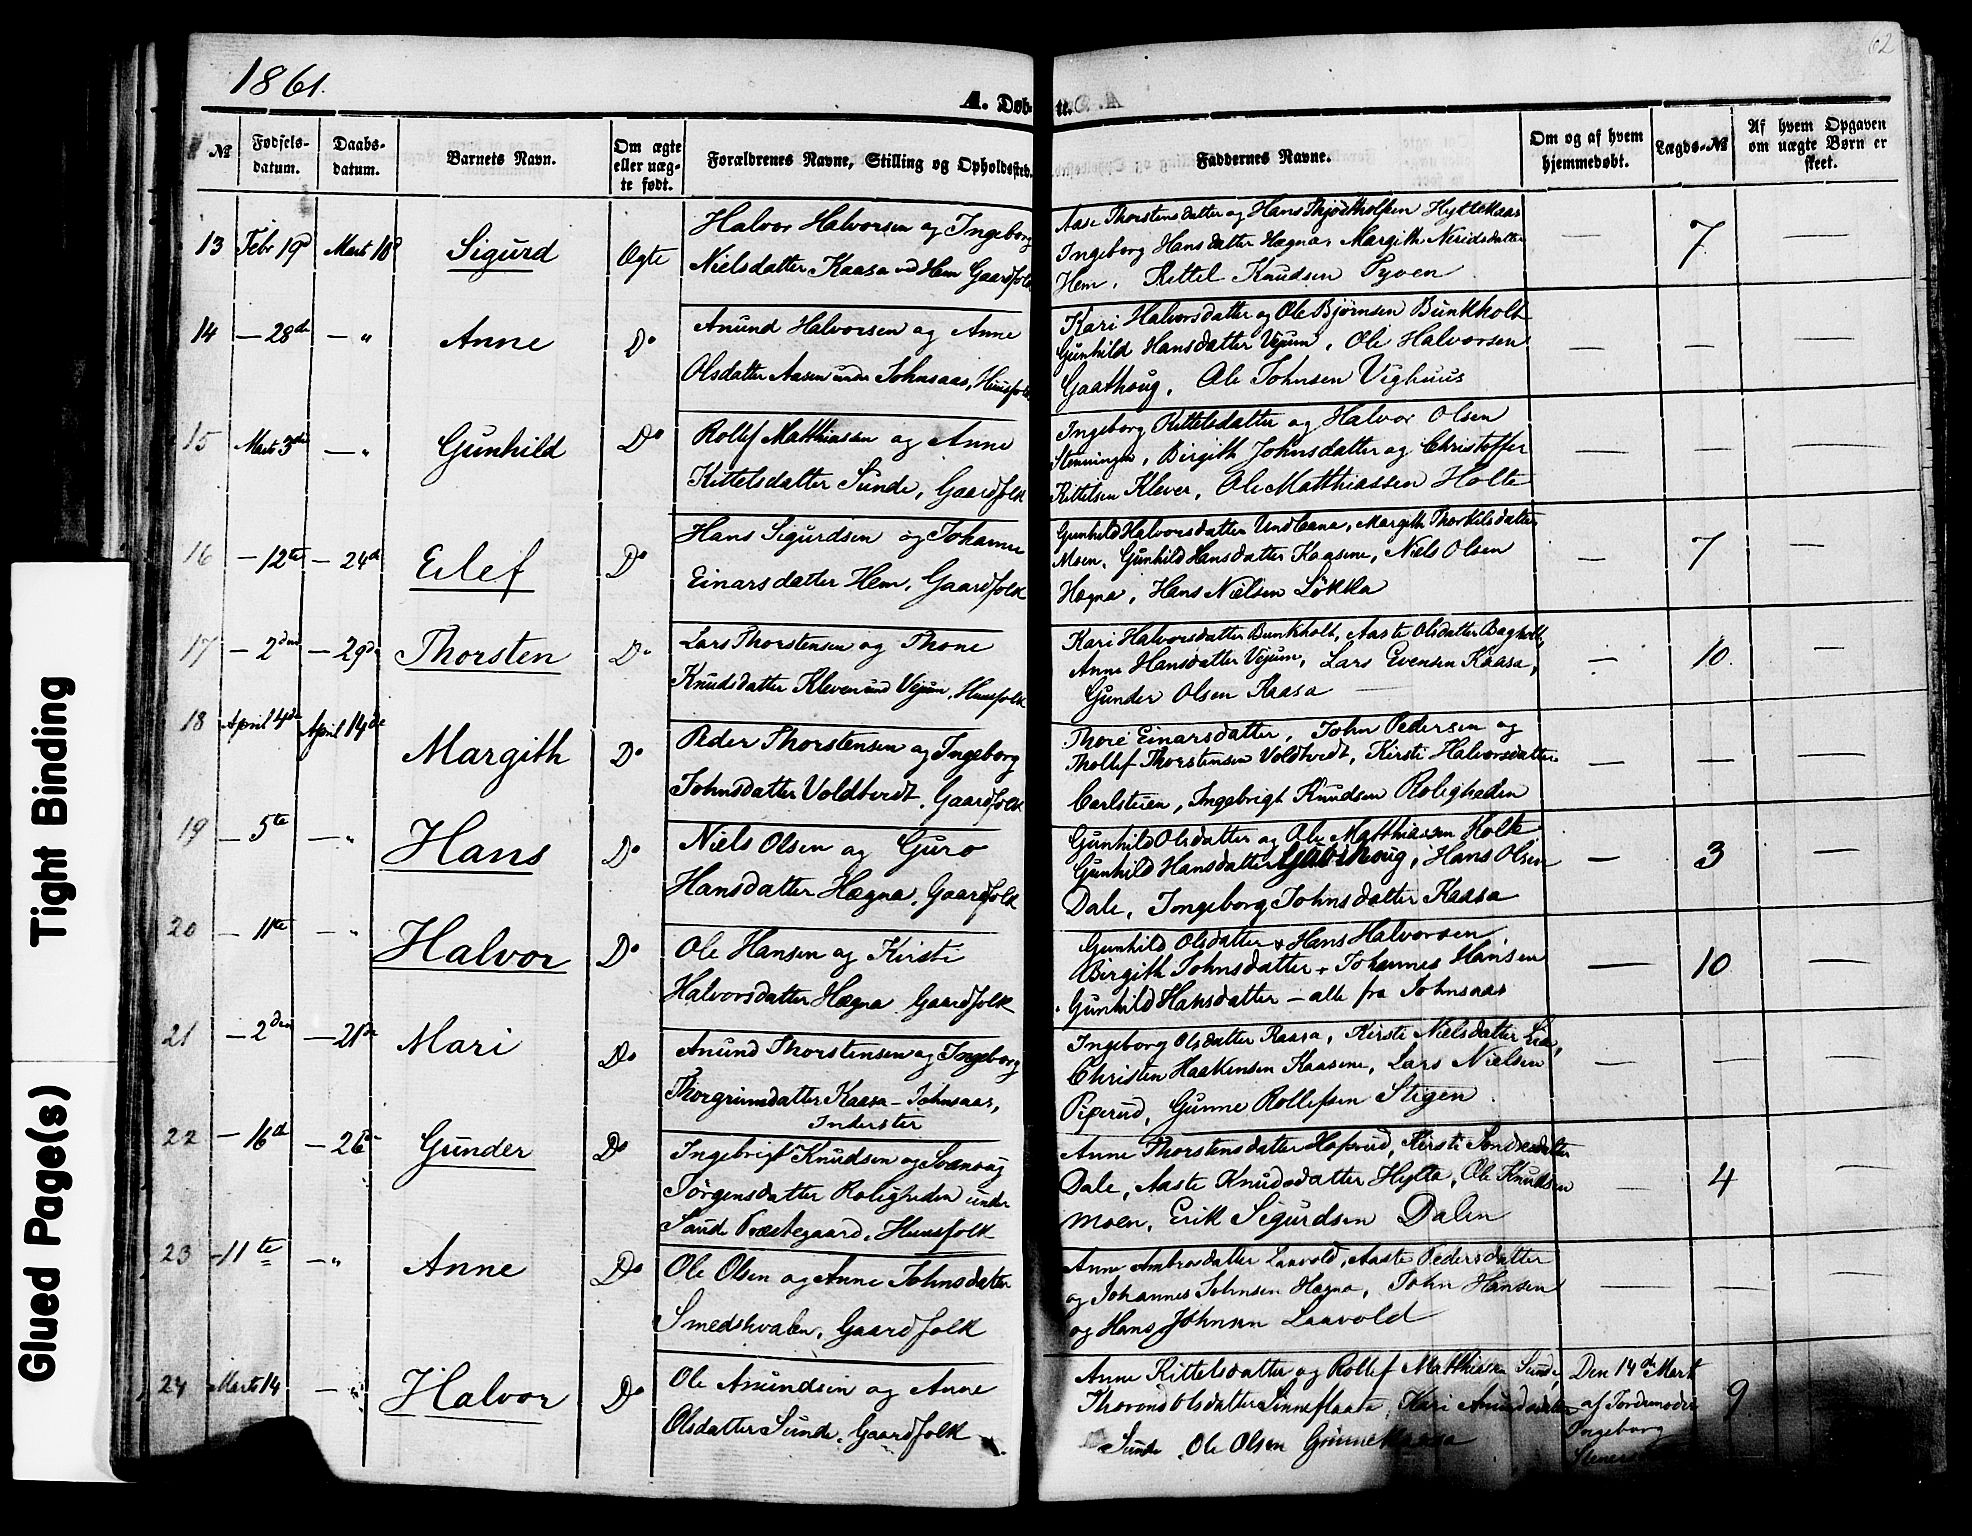 1861.
62
A. Døbte.
№
Fødselsdatum.
Daabsdatum.
Barnets Navn.
Om ægte eller uægte født.
Forældrenes Navne, Stilling og Opholdssted.
Faddernes Navne.
Om og af hvem hjemmedøbt.
Lægds-№
Af hvem Opgaven om uægte Børn er skeet.
13 Febr 19d Marts 18d Sigurd Ægte
Halvor Halvorsen og Ingeborg
Nielsdatter Kaasa ved Hem Gaardfolk
Aase Thorstensdatter og Hans Hyttekaas
Ingeborg Hansdatter Hægna, Margith Neridsdatter
Hem, Kittel Knudsen Tyven
— 7 —
14 — 28de — " Anne Do
Anund Halvorsen og Anne
Olsdatter Aasen under Johnsaas, Huusfolk
Kari Halvorsdatter og Ole Bjørnsen Bunkholt
Gunhild Hansdatter Vejum, Ole Halvorsen
Gaathoug, Ole Johnsen Vighuus
— — —
15 Marts 3die — " Gunhild Do
Rollef Matthiassen og Anne
Kittelsdatter Sunde, Gaardfolk
Ingeborg Kittelsdatter og Halvor Olsen
Stenningen, Birgith Johnsdatter og Christoffer
Kittelsen Klever, Ole Matthiassen Holte
— — —
16 — 12te — 24d Eilef Do
Hans Sigurdsen og Johanne
Einarsdatter Hem, Gaardfolk
Gunhild Halvorsdatter, Margith Thorkilsdatter
Moen, Gunhild Hansdatter Kaasene, Niels Olsen
Hægna, Hans Nielsen Løkka
— 7 —
17 — 2den — 29de Thorsten Do
Lars Thorstensen og Thone
Knudsdatter Kleven und Vejum, Huusfolk
Kari Halvorsdatter Bunkholt, Aaste Olsdatter Bagholt,
Anne Hansdatter Vejum, Lars Evensen Kaasa,
Gunder Olsen Kaasa
— 10. —
18 April 4de April 14de Margith Do
Peder Thorstensen og Ingeborg
Johnsdatter Voldtvedt, Gaardfolk
Thore Einarsdatter, John Pedersen og
Thollef Thorstensen Voldtvedt, Kirsti Halvorsdatter
Carlsteien, Ingebrigt Knudsen Roligheden
— — —
19 — 5te — " Hans Do
Niels Olsen og Guro
Hansdatter Hægna, Gaardfolk
Gunhild Olsdatter og Ole Matthiassen Holte
Gunhild Hansdatter Gaathoug, Hans Olsen
Dale, Ingeborg Johnsdatter Kaasa
— 3 —
20 — 11te — " Halvor Do
Ole Hansen og Kirsti
Halvorsdatter Hægna Gaardfolk
Gunhild Olsdatter + Hans Halvorsen
Birgith Johnsdatter + Johannes Hansen
Gunhild Hansdatter — alle fra Johnsaas
— 10 —
21 — 2den — 21de Mari Do
Anund Thorstensen og Ingeborg
Thorgrimsdatter Kaasa - Johnsaas,
Inderster
Ingeborg Olsdatter Kaasa, Kirsti Nielsdatter Lia,
Christen Haakensen Kaasene, Lars Nielsen
Piperud, Gunne Rollefsen Stigen
— — —
22 — 16d — 26 Gunder Do
Ingebrigt Knudsen og Svanoug
Jørgensdatter Roligheden under
Saude Præstegaard, Huusfolk
Anne Thorstensdatter, Kirsti Sondresdatter
Dale, Aaste Knudsdatter Hylta, Ole Knudsen
Moen, Erik Sigurdsen Dalen
— 4 —
23 — 11te — " Anne Do
Ole Olsen og Anne Johnsdatter
Smedshvalen, Gaardfolk
Anne Ambrosdatter Laavold, Aaste Pedersdatter
og Johannes Johnsen Hægna, John Hansen
og Hans Johnsen Laavold
— — —
24 Marts 14 — " Halvor Do
Ole Anundsen og Anne
Olsdatter Sunde, Gaardfolk
Anne Kittelsdatter og Rollef Matthiassen Sunde,
Olsdatter, Kari Anundsdatter
Sunde, Ole Olsen
Den 14de Mart
af Jordemoder
Ingeborg
9
Tight Binding
Glued Page(s)